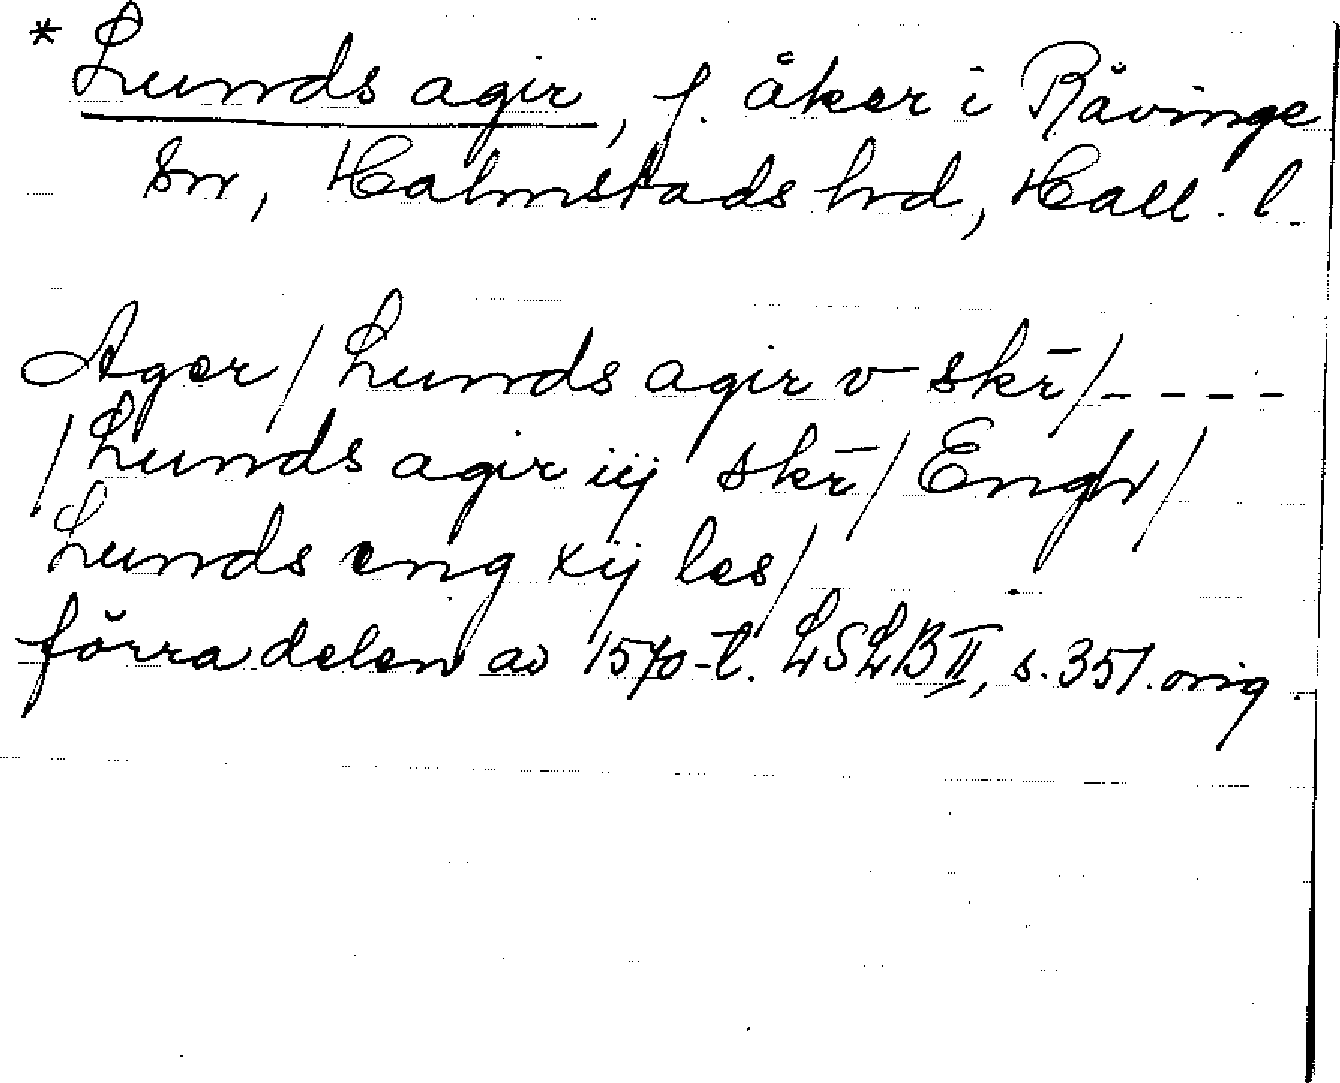 * Lunds agir, f. åker i Råvinge
sn, Halmstads hrd, Hall. l.
Ager / Lunds agir v skr̄ / - - - -
/ Lunds agir iij skr̄ / Engh /
Lunds eng xij les /
förra delen av 1570-t. LSLB II, s. 351. orig.